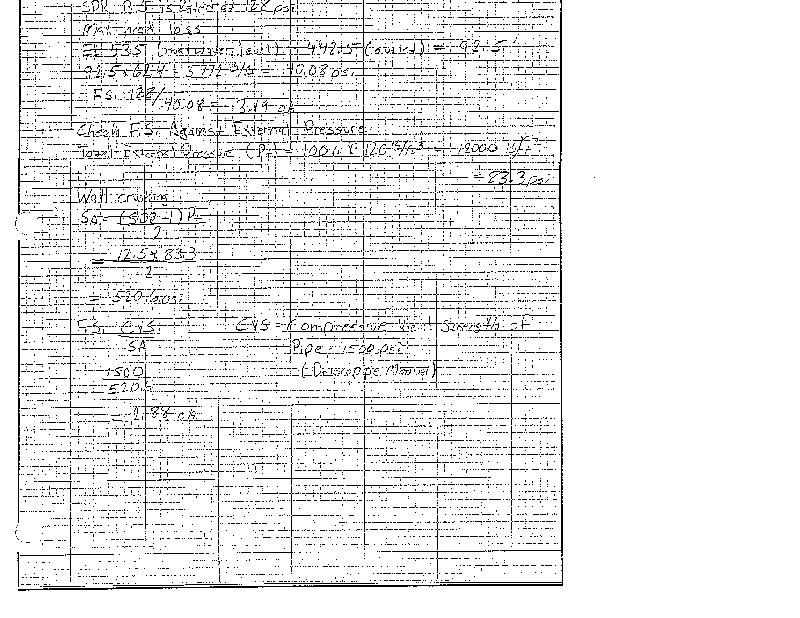 SDR 13.5 is rated at 128 psi
Max head loss
El 535 (max water level) - 442.5 (outlet) = 92.5'
92.5 x 62.4 = 5772 #/ft² = 40.08 psi
F.S. 128/40.08 = 3.19 ok
Check F.S. Against External Pressure
Total External Pressure (PT) = 100ft x 120 lb/ft³ = 12000 lb/ft²
= 83.3 psi
Wall crushing
SA = (SDR-1) PT
2
= 12.5 x 83.3
2
= 520.6 psi
F.S. CYS
SA
CYS = Compressive Yield Strength of
Pipe = 1500 psi
(Driscopipe Manual)
1500
= 520.6
= 2.88 ok